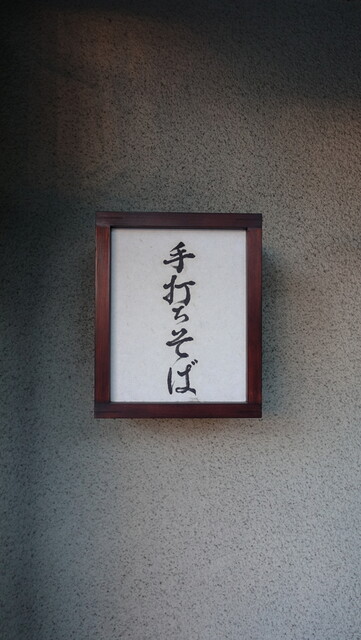 手打ちそば